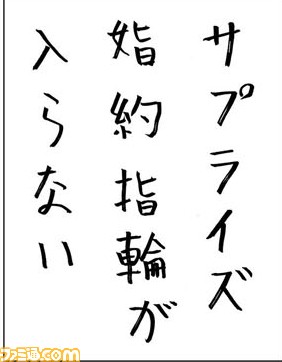 サプライズ
婚約指輪が
入らない
ファミ通.com